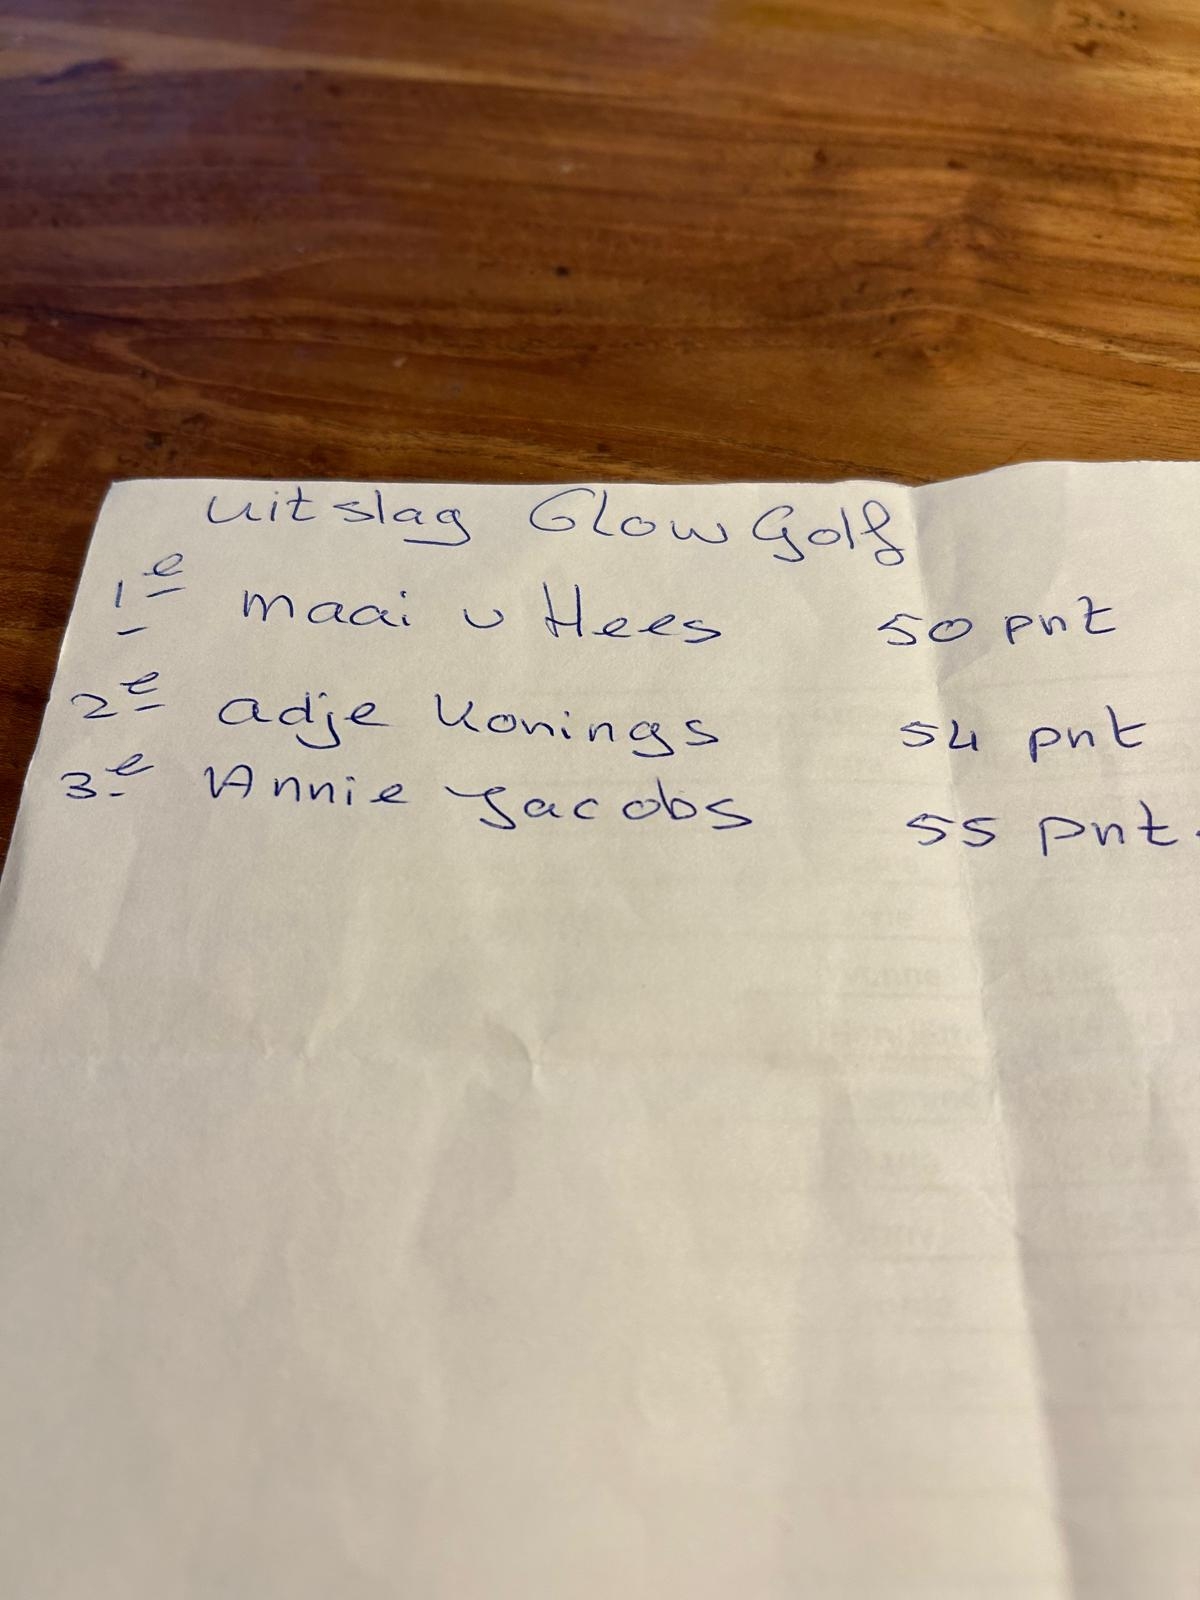 uitslag Glow Golf
1e maai v Hees 50 pnt
2e adje Konings 54 pnt
3e Annie Jacobs 55 pnt.